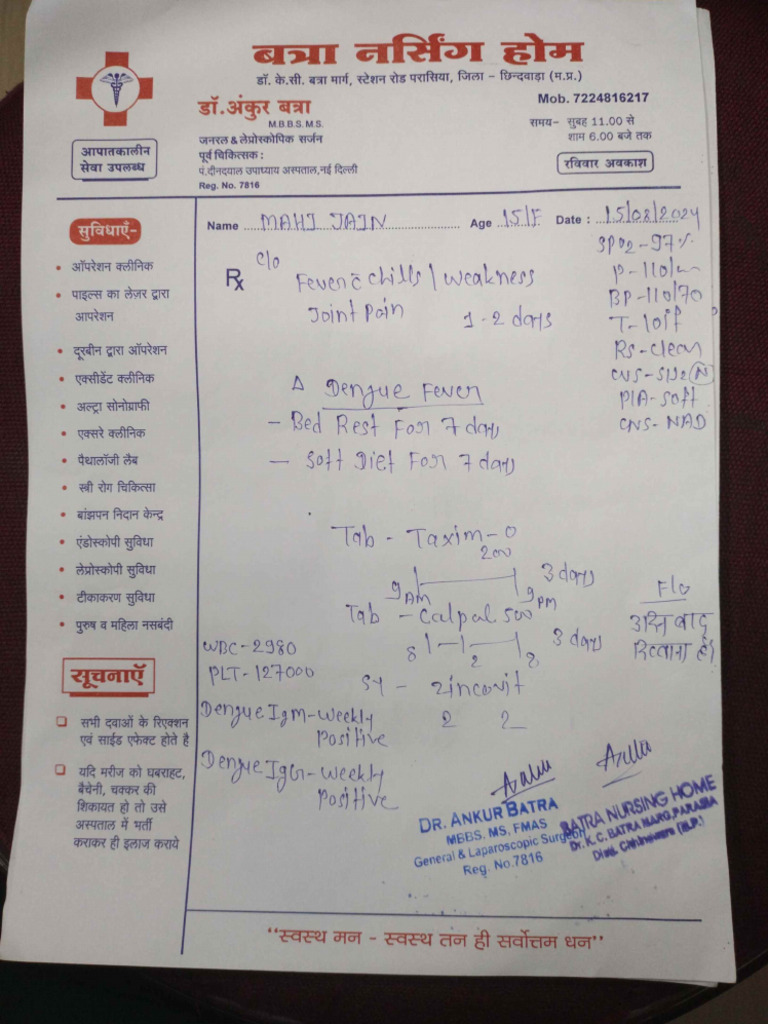 बत्रा नर्सिंग होम
डॉ. के.सी. बत्रा मार्ग, स्टेशन रोड परासिया, जिला – छिन्दवाड़ा (म.प्र.)
डॉ. अंकुर बत्रा
M.B.B.S. M.S.
जनरल & लेप्रोस्कोपिक सर्जन
पूर्व चिकित्सक :
पं. दीनदयाल उपाध्याय अस्पताल, नई दिल्ली
Reg. No. 7816
Mob. 7224816217
समय– सुबह 11.00 से
शाम 6.00 बजे तक
रविवार अवकाश
आपातकालीन
सेवा उपलब्ध
Name MAHI JAIN Age 15/F Date : 15/08/2024
SPO2-97%
P-110/m
BP-110/70
T-101°F
Rs-clear
CVS-S1S2 N
P/A-Soft
CNS-NAD
Rx c/o
Fever c chills / weakness
Joint Pain 1-2 days
Δ Dengue Fever
- Bed Rest For 7 days
- Soft Diet For 7 days
Tab - Taxim-O
200
9 AM 9 PM 3 days
Tab - Calpal 500
8 2 8 3 days
Sy - Zincovit
2 2
F/o
WBC-2980
PLT-127000
Dengue Igm-weekly
Positive
Dengue IgG-weekly
Positive
DR. ANKUR BATRA
MBBS, MS, FMAS
General & Laparoscopic Surgeon
Reg. No.7816
BATRA NURSING HOME
Dr. K. C. BATRA MARG, PARASIA
Distt. Chhindwara (M.P.)
सुविधाएँ-
• ऑपरेशन क्लीनिक
• पाइल्स का लेज़र द्वारा
आपरेशन
• दूरबीन द्वारा ऑपरेशन
• एक्सीडेंट क्लीनिक
• अल्ट्रा सोनोग्राफी
• एक्सरे क्लीनिक
• पैथालॉजी लैब
• स्त्री रोग चिकित्सा
• बांझपन निदान केन्द्र
• एंडोस्कोपी सुविधा
• लेप्रोस्कोपी सुविधा
• टीकाकरण सुविधा
• पुरुष व महिला नसबंदी
सूचनाएँ
सभी दवाओं के रिएक्शन
एवं साईड एफेक्ट होते है
यदि मरीज को घबराहट,
बैचेनी, चक्कर की
शिकायत हो तो उसे
अस्पताल में भर्ती
कराकर ही इलाज कराये
"स्वस्थ मन - स्वस्थ तन ही सर्वोत्तम धन"